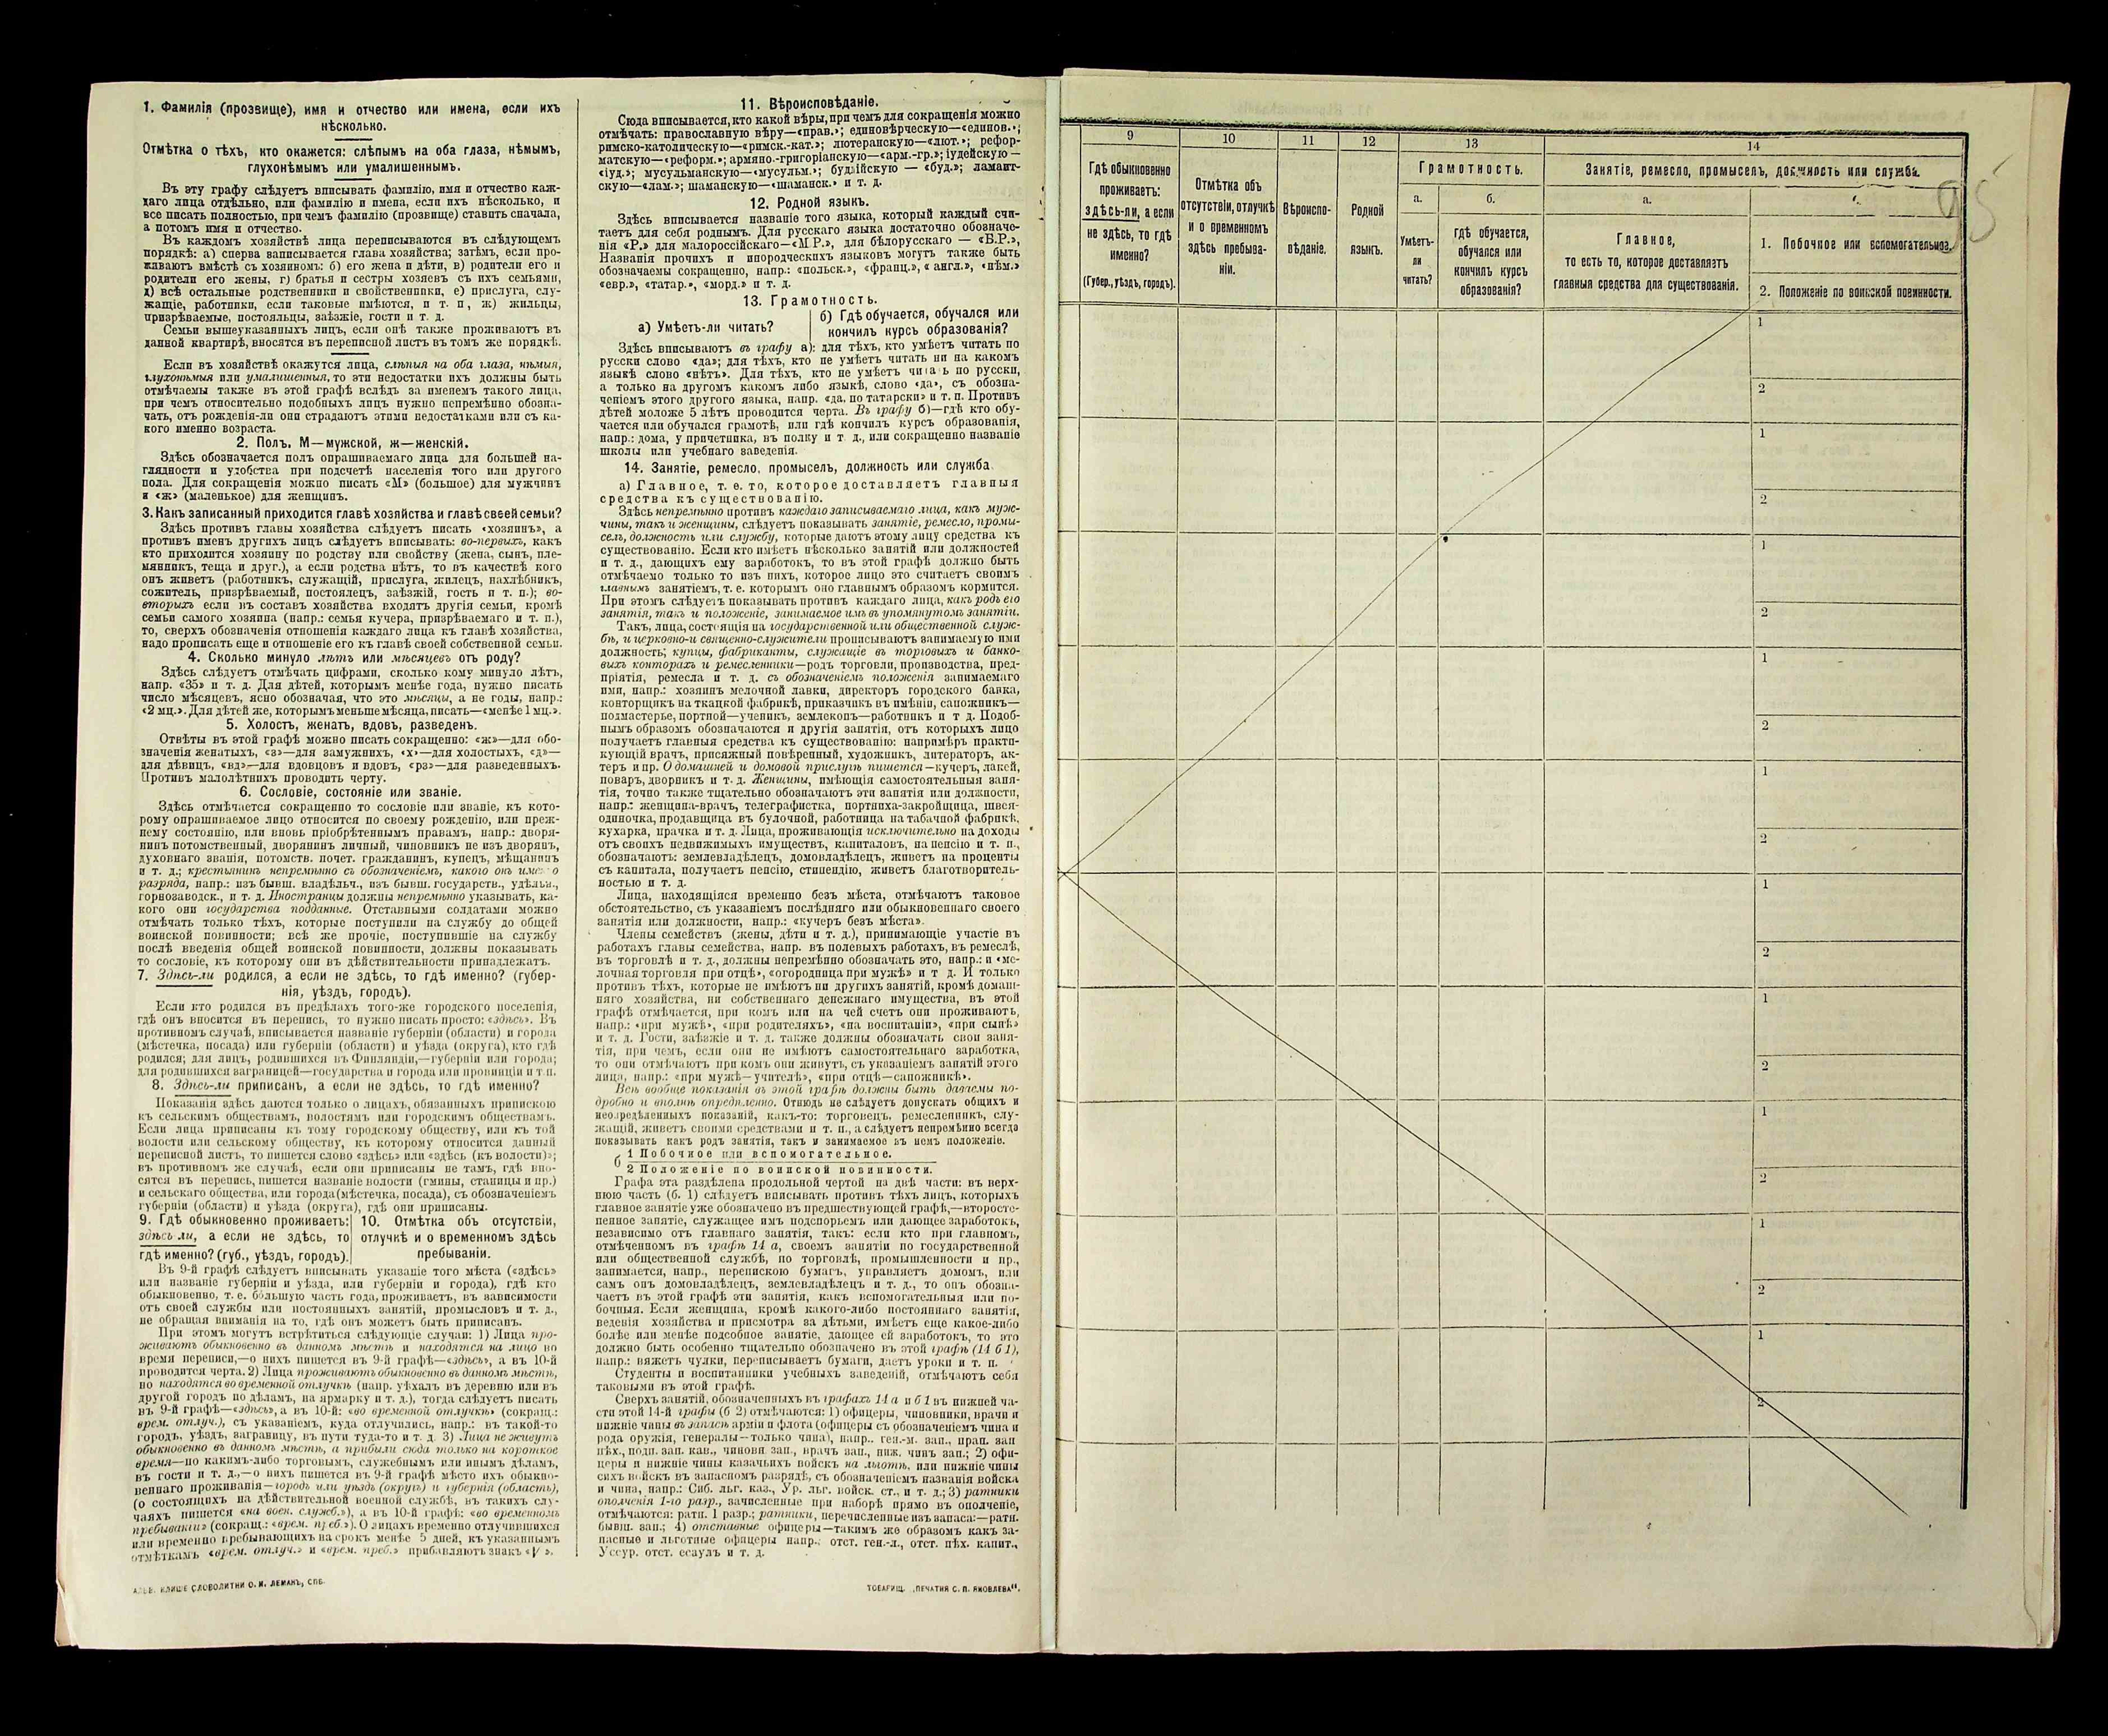 1. Фамилія (прозвище), имя и отчество или имена, если ихъ
нѣсколько.
Отмѣтка о тѣхъ, кто окажется: слѣпымъ на оба глаза, нѣмымъ,
глухонѣмымъ или умалишеннымъ.
Въ эту графу слѣдуетъ вписывать фамилію, имя и отчество каж-
даго лица отдѣльно, или фамилію и имена, если ихъ нѣсколько, и
все писать полностью, при чемъ фамилію (прозвище) ставить сначала,
а потомъ имя и отчество.
Въ каждомъ хозяйствѣ лица переписываются въ слѣдующемъ
порядкѣ: а) сперва записывается глава хозяйства; затѣмъ, если про-
живаютъ вмѣстѣ съ хозяиномъ: б) его жена и дѣти, в) родители его и
родители его жены, г) братья и сестры хозяевъ съ ихъ семьями,
д) всѣ остальные родственники и свойственники, е) прислуга, слу-
жащіе, работники, если таковые имѣются, и т. п, ж) жильцы,
призрѣваемые, постояльцы, заѣзжіе, гости и т. д.
Семьи вышеуказанныхъ лицъ, если онѣ также проживаютъ въ
данной квартирѣ, вносятся въ переписной листъ въ томъ же порядкѣ.
Если въ хозяйствѣ окажутся лица, слѣпыя на оба глаза, нѣмыя,
глухонѣмыя или умалишенныя, то эти недостатки ихъ должны быть
отмѣчаемы также въ этой графѣ вслѣдъ за именемъ такого лица,
при чемъ относительно подобныхъ лицъ нужно непремѣнно обозна-
чать, отъ рожденія-ли они страдаютъ этими недостатками или съ ка-
кого именно возраста.
2. Полъ. М—мужской, ж—женскій.
Здѣсь обозначается полъ опрашиваемаго лица для большей на-
глядности и удобства при подсчетѣ населенія того или другого
пола. Для сокращенія можно писать «М» (большое) для мужчинъ
и «ж» (маленькое) для женщинъ.
3. Какъ записанный приходится главѣ хозяйства и главѣ своей семьи?
Здѣсь противъ главы хозяйства слѣдуетъ писать «хозяинъ», а
противъ именъ другихъ лицъ слѣдуетъ вписывать: во-первыхъ, какъ
кто приходится хозяину по родству или свойству (жена, сынъ, пле-
мянникъ, теща и друг.), а если родства нѣтъ, то въ качествѣ кого
онъ живетъ (работникъ, служащій, прислуга, жилецъ, нахлѣбникъ,
сожитель, призрѣваемый, постоялецъ, заѣзжій, гость и т. п.); во-
вторыхъ если въ составъ хозяйства входятъ другія семьи, кромѣ
семьи самого хозяина (напр.: семья кучера, призрѣваемаго и т. п.),
то, сверхъ обозначенія отношенія каждаго лица къ главѣ хозяйства,
надо прописать еще и отношеніе его къ главѣ своей собственной семьи.
4. Сколько минуло лѣтъ или мѣсяцевъ отъ роду?
Здѣсь слѣдуетъ отмѣчать цифрами, сколько кому минуло лѣтъ,
напр. «35» и т. д. Для дѣтей, которымъ менѣе года, нужно писать
число мѣсяцевъ, ясно обозначая, что это мѣсяцы, а не годы, напр.:
«2 мц.». Для дѣтей же, которымъ меньше мѣсяца, писать—«менѣе 1 мц.».
5. Холостъ, женатъ, вдовъ, разведенъ.
Отвѣты въ этой графѣ можно писать сокращенно: «ж»—для обо-
значенія женатыхъ, «з»—для замужнихъ, «х»—для холостыхъ, «д»—
для дѣвицъ, «вд»—для вдовцовъ и вдовъ, «рз»—для разведенныхъ.
Противъ малолѣтнихъ проводить черту.
6. Сословіе, состояніе или званіе.
Здѣсь отмѣчается сокращенно то сословіе или званіе, къ кото-
рому опрашиваемое лицо относится по своему рожденію, или преж-
нему состоянію, или вновь пріобрѣтеннымъ правамъ, напр.: дворя-
нинъ потомственный, дворянинъ личный, чиновникъ не изъ дворянъ,
духовнаго званія, потомств. почет. гражданинъ, купецъ, мѣщанинъ
и т. д.; крестьянинъ непремѣнно съ обозначеніемъ, какого онъ именно
разряда, напр.: изъ бывш. владѣльч., изъ бывш. государств., удѣльн.,
горнозаводск., и т. д. Иностранцы должны непремѣнно указывать, ка-
кого они государства подданные. Отставными солдатами можно
отмѣчать только тѣхъ, которые поступили на службу до общей
воинской повинности; всѣ же прочіе, поступившіе на службу
послѣ введенія общей воинской повинности, должны показывать
то сословіе, къ которому они въ дѣйствительности принадлежатъ.
7. Здѣсь-ли родился, а если не здѣсь, то гдѣ именно? (губер-
нія, уѣздъ, городъ).
Если кто родился въ предѣлахъ того-же городского поселенія,
гдѣ онъ вносится въ перепись, то нужно писать просто: «здѣсь». Въ
противномъ случаѣ, вписывается названіе губерніи (области) и города
(мѣстечка, посада) или губерніи (области) и уѣзда (округа), кто гдѣ
родился; для лицъ, родившихся въ Финляндіи,—губерніи или города;
для родившихся заграницей—государства и города или провинціи и т.п.
8. Здѣсь-ли приписанъ, а если не здѣсь, то гдѣ именно?
Показанія здѣсь даются только о лицахъ, обязанныхъ припискою
къ сельскимъ обществамъ, волостямъ или городскимъ обществамъ.
Если лица приписаны къ тому городскому обществу, или къ той
волости или сельскому обществу, къ которому относится данный
переписной листъ, то пишется слово «здѣсь» или «здѣсь (къ волости)»;
въ противномъ же случаѣ, если они приписаны не тамъ, гдѣ вно-
сятся въ перепись, пишется названіе волости (гмины, станицы и пр.)
и сельскаго общества, или города (мѣстечка, посада), съ обозначеніемъ
губерніи (области) и уѣзда (округа), гдѣ они приписаны.
9. Гдѣ обыкновенно проживаетъ:
здѣсь ли, а если не здѣсь, то
гдѣ именно? (губ., уѣздъ, городъ).
10. Отмѣтка объ отсутствіи,
отлучкѣ и о временномъ здѣсь
пребываніи.
Въ 9-й графѣ слѣдуетъ вписывать указаніе того мѣста («здѣсь»
или названіе губерніи и уѣзда, или губерніи и города), гдѣ кто
обыкновенно, т. е. бо́льшую часть года, проживаетъ, въ зависимости
отъ своей службы или постоянныхъ занятій, промысловъ и т. д.,
не обращая вниманія на то, гдѣ онъ можетъ быть приписанъ.
При этомъ могутъ встрѣтиться слѣдующіе случаи: 1) Лица про-
живаютъ обыкновенно въ данномъ мѣстѣ и находятся на лицо во
время переписи,—о нихъ пишется въ 9-й графѣ—«здѣсь», а въ 10-й
проводится черта. 2) Лица проживаютъ обыкновенно въ данномъ мѣстѣ,
но находятся во временной отлучкѣ (напр. уѣхалъ въ деревню или въ
другой городъ по дѣламъ, на ярмарку и т. д.), тогда слѣдуетъ писать
въ 9-й графѣ—«здѣсь», а въ 10-й: «во временной отлучкѣ» (сокращ.:
врем. отлуч.), съ указаніемъ, куда отлучились, напр.: въ такой-то
городъ, уѣздъ, заграницу, въ пути туда-то и т. д. 3) Лица не живутъ
обыкновенно въ данномъ мѣстѣ, а прибыли сюда только на короткое
время—по какимъ-либо торговымъ, служебнымъ или инымъ дѣламъ,
въ гости и т. д.,—о нихъ пишется въ 9-й графѣ мѣсто ихъ обыкно-
веннаго проживанія—городъ или уѣздъ (округъ) и губернія (область),
(о состоящихъ на дѣйствительной военной службѣ, въ такихъ слу-
чаяхъ пишется «на воен. служб.»), а въ 10-й графѣ: «во временномъ
пребываніи» (сокращ.: «врем. преб.»). О лицахъ временно отлучившихся
или временно пребывающихъ на срокъ менѣе 5 дней, къ указаннымъ
отмѣткамъ «врем. отлуч.» и «врем. преб.» прибавляютъ знакъ «V».
КЛИШЕ СЛОВОЛИТНИ О. И. ЛЕМАНЪ, СПБ.
11. Вѣроисповѣданіе.
Сюда вписывается, кто какой вѣры, при чемъ для сокращенія можно
отмѣчать: православную вѣру—«прав.»; единовѣрческую—«единов.»;
римско-католическую—«римск.-кат.»; лютеранскую—«лют.»; рефор-
матскую—«реформ.»; армяно.-григоріанскую—«арм.-гр.»; іудейскую—
«іуд.»; мусульманскую—«мусульм.»; буддійскую — «буд.»; ламаит-
скую—«лам.»; шаманскую—«шаманск.» и т. д.
12. Родной языкъ.
Здѣсь вписывается названіе того языка, который каждый счи-
таетъ для себя роднымъ. Для русскаго языка достаточно обозначе-
нія «Р.» для малороссійскаго—«М.Р.», для бѣлорусскаго — «Б.Р.»,
Названія прочихъ и инородческихъ языковъ могутъ также быть
обозначаемы сокращенно, напр.: «польск.», «франц.», « англ.», «нѣм.»
«евр.», «татар.», «морд.» и т. д.
13. Грамотность.
а) Умѣетъ-ли читать?
б) Гдѣ обучается, обучался или
кончилъ курсъ образованія?
Здѣсь вписываютъ въ графу а): для тѣхъ, кто умѣетъ читать по
русски слово «да»; для тѣхъ, кто не умѣетъ читать ни на какомъ
языкѣ слово «нѣтъ». Для тѣхъ, кто не умѣетъ читать по русски,
а только на другомъ какомъ либо языкѣ, слово «да», съ обозна-
ченіемъ этого другого языка, напр. «да, по татарски» и т. п. Противъ
дѣтей моложе 5 лѣтъ проводится черта. Въ графу б)—гдѣ кто обу-
чается или обучался грамотѣ, или гдѣ кончилъ курсъ образованія,
напр.: дома, у причетника, въ полку и т. д., или сокращенно названіе
школы или учебнаго заведенія.
14. Занятіе, ремесло, промыселъ, должность или служба
а) Главное, т. е. то, которое доставляетъ главныя
средства къ существованію.
Здѣсь непремѣнно противъ каждаго записываемаго лица, какъ муж-
чины, такъ и женщины, слѣдуетъ показывать занятіе, ремесло, промы-
селъ, должность или службу, которые даютъ этому лицу средства къ
существованію. Если кто имѣетъ нѣсколько занятій или должностей
и т. д., дающихъ ему заработокъ, то въ этой графѣ должно быть
отмѣчаемо только то изъ нихъ, которое лицо это считаетъ своимъ
главнымъ занятіемъ, т. е. которымъ оно главнымъ образомъ кормится.
При этомъ слѣдуетъ показывать противъ каждаго лица, какъ родъ его
занятія, такъ и положеніе, занимаемое имъ въ упомянутомъ занятіи.
Такъ, лица, состоящія на государственной или общественной служ-
бѣ, и церковно-и священно-служители прописываютъ занимаемую ими
должность; купцы, фабриканты, служащіе въ торговыхъ и банко-
выхъ конторахъ и ремесленники—родъ торговли, производства, пред-
пріятія, ремесла и т. д. съ обозначеніемъ положенія занимаемаго
ими, напр.: хозяинъ мелочной лавки, директоръ городского банка,
конторщикъ на ткацкой фабрикѣ, приказчикъ въ имѣніи, сапожникъ—
подмастерье, портной—ученикъ, землекопъ—работникъ и т д. Подоб-
нымъ образомъ обозначаются и другія занятія, отъ которыхъ лицо
получаетъ главныя средства къ существованію: напримѣръ практи-
кующій врачъ, присяжный повѣренный, художникъ, литераторъ, ак-
теръ и пр. О домашней и домовой прислугѣ пишется—кучеръ, лакей,
поваръ, дворникъ и т. д. Женщины, имѣющія самостоятельныя заня-
тія, точно также тщательно обозначаютъ эти занятія или должности,
напр.: женщина-врачъ, телеграфистка, портниха-закройщица, швея-
одиночка, продавщица въ булочной, работница на табачной фабрикѣ,
кухарка, прачка и т. д. Лица, проживающія исключительно на доходы
отъ своихъ недвижимыхъ имуществъ, капиталовъ, на пенсію и т. п.,
обозначаютъ: землевладѣлецъ, домовладѣлецъ, живетъ на проценты
съ капитала, получаетъ пенсію, стипендію, живетъ благотворитель-
ностью и т. д.
Лица, находящіяся временно безъ мѣста, отмѣчаютъ таковое
обстоятельство, съ указаніемъ послѣдняго или обыкновеннаго своего
занятія или должности, напр.: «кучеръ безъ мѣста».
Члены семействъ (жены, дѣти и т. д.), принимающіе участіе въ
работахъ главы семейства, напр. въ полевыхъ работахъ, въ ремеслѣ,
въ торговлѣ и т. д., должны непремѣнно обозначать это, напр.: и «ме-
лочная торговля при отцѣ», «огородница при мужѣ» и т д. И только
противъ тѣхъ, которые не имѣютъ ни другихъ занятій, кромѣ домаш-
няго хозяйства, ни собственнаго денежнаго имущества, въ этой
графѣ отмѣчается, при комъ или на чей счетъ они проживаютъ,
напр.: «при мужѣ», «при родителяхъ», «на воспитаніи», «при сынѣ»
и т. д. Гости, заѣзжіе и т. д. также должны обозначать свои заня-
тія, при чемъ, если они не имѣютъ самостоятельнаго заработка,
то они отмѣчаютъ при комъ они живутъ, съ указаніемъ занятій этого
лица, напр.: «при мужѣ—учителѣ», «при отцѣ—сапожникѣ».
Всѣ вообще показанія въ этой графѣ должны быть даваемы по-
дробно и вполнѣ опредѣленно. Отнюдь не слѣдуетъ допускать общихъ и
неопредѣленныхъ показаній, какъ-то: торговецъ, ремесленникъ, слу-
жащій, живетъ своими средствами и т. п., а слѣдуетъ непремѣнно всегда
показывать какъ родъ занятія, такъ и занимаемое въ немъ положеніе.
б 1 Побочное или вспомогательное.
2 Положеніе по воинской повинности.
Графа эта раздѣлена продольной чертой на двѣ части: въ верх-
нюю часть (б. 1) слѣдуетъ вписывать противъ тѣхъ лицъ, которыхъ
главное занятіе уже обозначено въ предшествующей графѣ,—второсте-
пенное занятіе, служащее имъ подспорьемъ или дающее заработокъ,
независимо отъ главнаго занятія, такъ: если кто при главномъ,
отмѣченномъ въ графѣ 14 а, своемъ занятіи по государственной
или общественной службѣ, по торговлѣ, промышленности и пр.,
занимается, напр., перепискою бумагъ, управляетъ домомъ, или
самъ онъ домовладѣлецъ, землевладѣлецъ и т. д., то онъ обозна-
чаетъ въ этой графѣ эти занятія, какъ вспомогательныя или по-
бочныя. Если женщина, кромѣ какого-либо постояннаго занятія,
веденія хозяйства и присмотра за дѣтьми, имѣетъ еще какое-либо
болѣе или менѣе подсобное занятіе, дающее ей заработокъ, то это
должно быть особенно тщательно обозначено въ этой графѣ (14 б 1),
напр.: вяжетъ чулки, переписываетъ бумаги, даетъ уроки и т. п.
Студенты и воспитанники учебныхъ заведеній, отмѣчаютъ себя
таковыми въ этой графѣ.
Сверхъ занятій, обозначенныхъ въ графахъ 14 а и б 1 въ нижней ча-
сти этой 14-й графы (б 2) отмѣчаются: 1) офицеры, чиновники, врачи и
нижніе чины въ запасѣ арміи и флота (офицеры съ обозначеніемъ чина и
рода оружія, генералы—только чина), напр.. ген.-м. зап., прап. зап
пѣх., подп. зап. кав., чиновн. зап., врачъ зап., ниж. чинъ зап.; 2) офи-
церы и нижніе чины казачьихъ войскъ на льготѣ, или нижніе чины
сихъ войскъ въ запасномъ разрядѣ, съ обозначеніемъ названія войска
и чина, напр.: Сиб. льг. каз., Ур. льг. войск. ст., и т. д.; 3) ратники
ополченія 1-го разр., зачисленные при наборѣ прямо въ ополченіе,
отмѣчаются: ратн. 1 разр.; ратники, перечисленные изъ запаса:—ратн.
бывш. зап.; 4) отставные офицеры—такимъ же образомъ какъ за-
пасные и льготные офицеры напр.: отст. ген.-л., отст. пѣх. капит.,
Уссур. отст. есаулъ и т. д.
ТОВАРИЩ. „ПЕЧАТНЯ С. П. ЯКОВЛЕВА“.
95
9
10
11
12
13
14
Гдѣ обыкновенно
проживаетъ:
здѣсь-ли, а если
не здѣсь, то гдѣ
именно?
(Губер., уѣздъ, городъ).
Отмѣтка объ
отсутствіи, отлучкѣ
и о временномъ
здѣсь пребыва-
ніи.
Вѣроиспо-
вѣданіе.
Родной
языкъ.
Грамотность.
а.
Умѣетъ-
ли
читать?
б.
Гдѣ обучается,
обучался или
кончилъ курсъ
образованія?
Занятіе, ремесло, промыселъ, должность или служба.
а.
Главное,
то есть то, которое доставляетъ
главныя средства для существованія.
1. Побочное или вспомогательное.
2. Положеніе по воинской повинности.
1
2
1
2
1
2
1
2
1
2
1
2
1
2
1
2
1
2
1
2